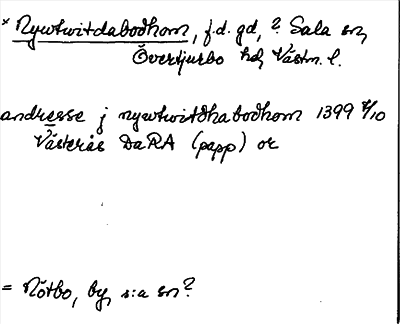 * Nywtwitdabodhom, f.d. gd, ? Sala sn,
Övertjurbo hd, Västm. l.
andresse j nywtwitdhabodhom 1399 8/10
Västerås DaRA (papp) or
= Nötbo, by, s:a sn?